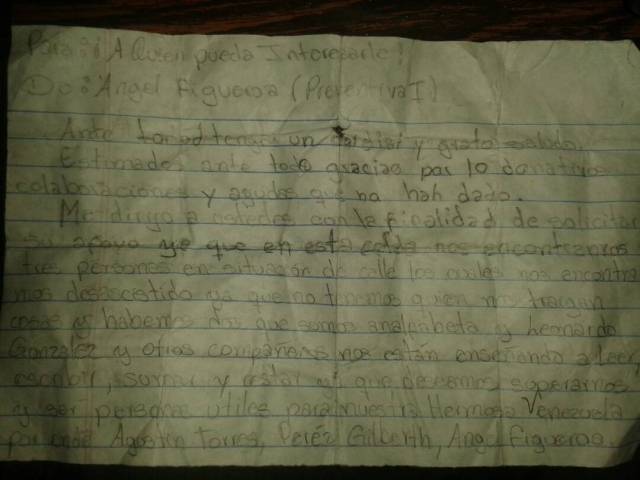 Para:: A Quien pueda Interesarle!
De:: Angel Figueroa (Preventiva I)
Ante tengan un y grato saludo.
Estimades, ante todo gracias por lo donativos
colaboraciones y ayudas que na han dado.
Me dirijo a ustedes con la finalidad de solicitar
su apoyo ya que en esta celda nos encontramos
tres personas en situación de calle los cuales nos encontra
mos ya que no tenemos quien nos traigan
cosas y habemos dos que somos analfabeta y Leonardo
González y otros compañeros nos están enseñando a leer,
escribir, sumar y restar ya que deseamos superarnos
y ser personas utiles para nuestra Hermosa Venezuela
por ende Agostin Torres, Peréz Gilberth, Angel Figueroa.